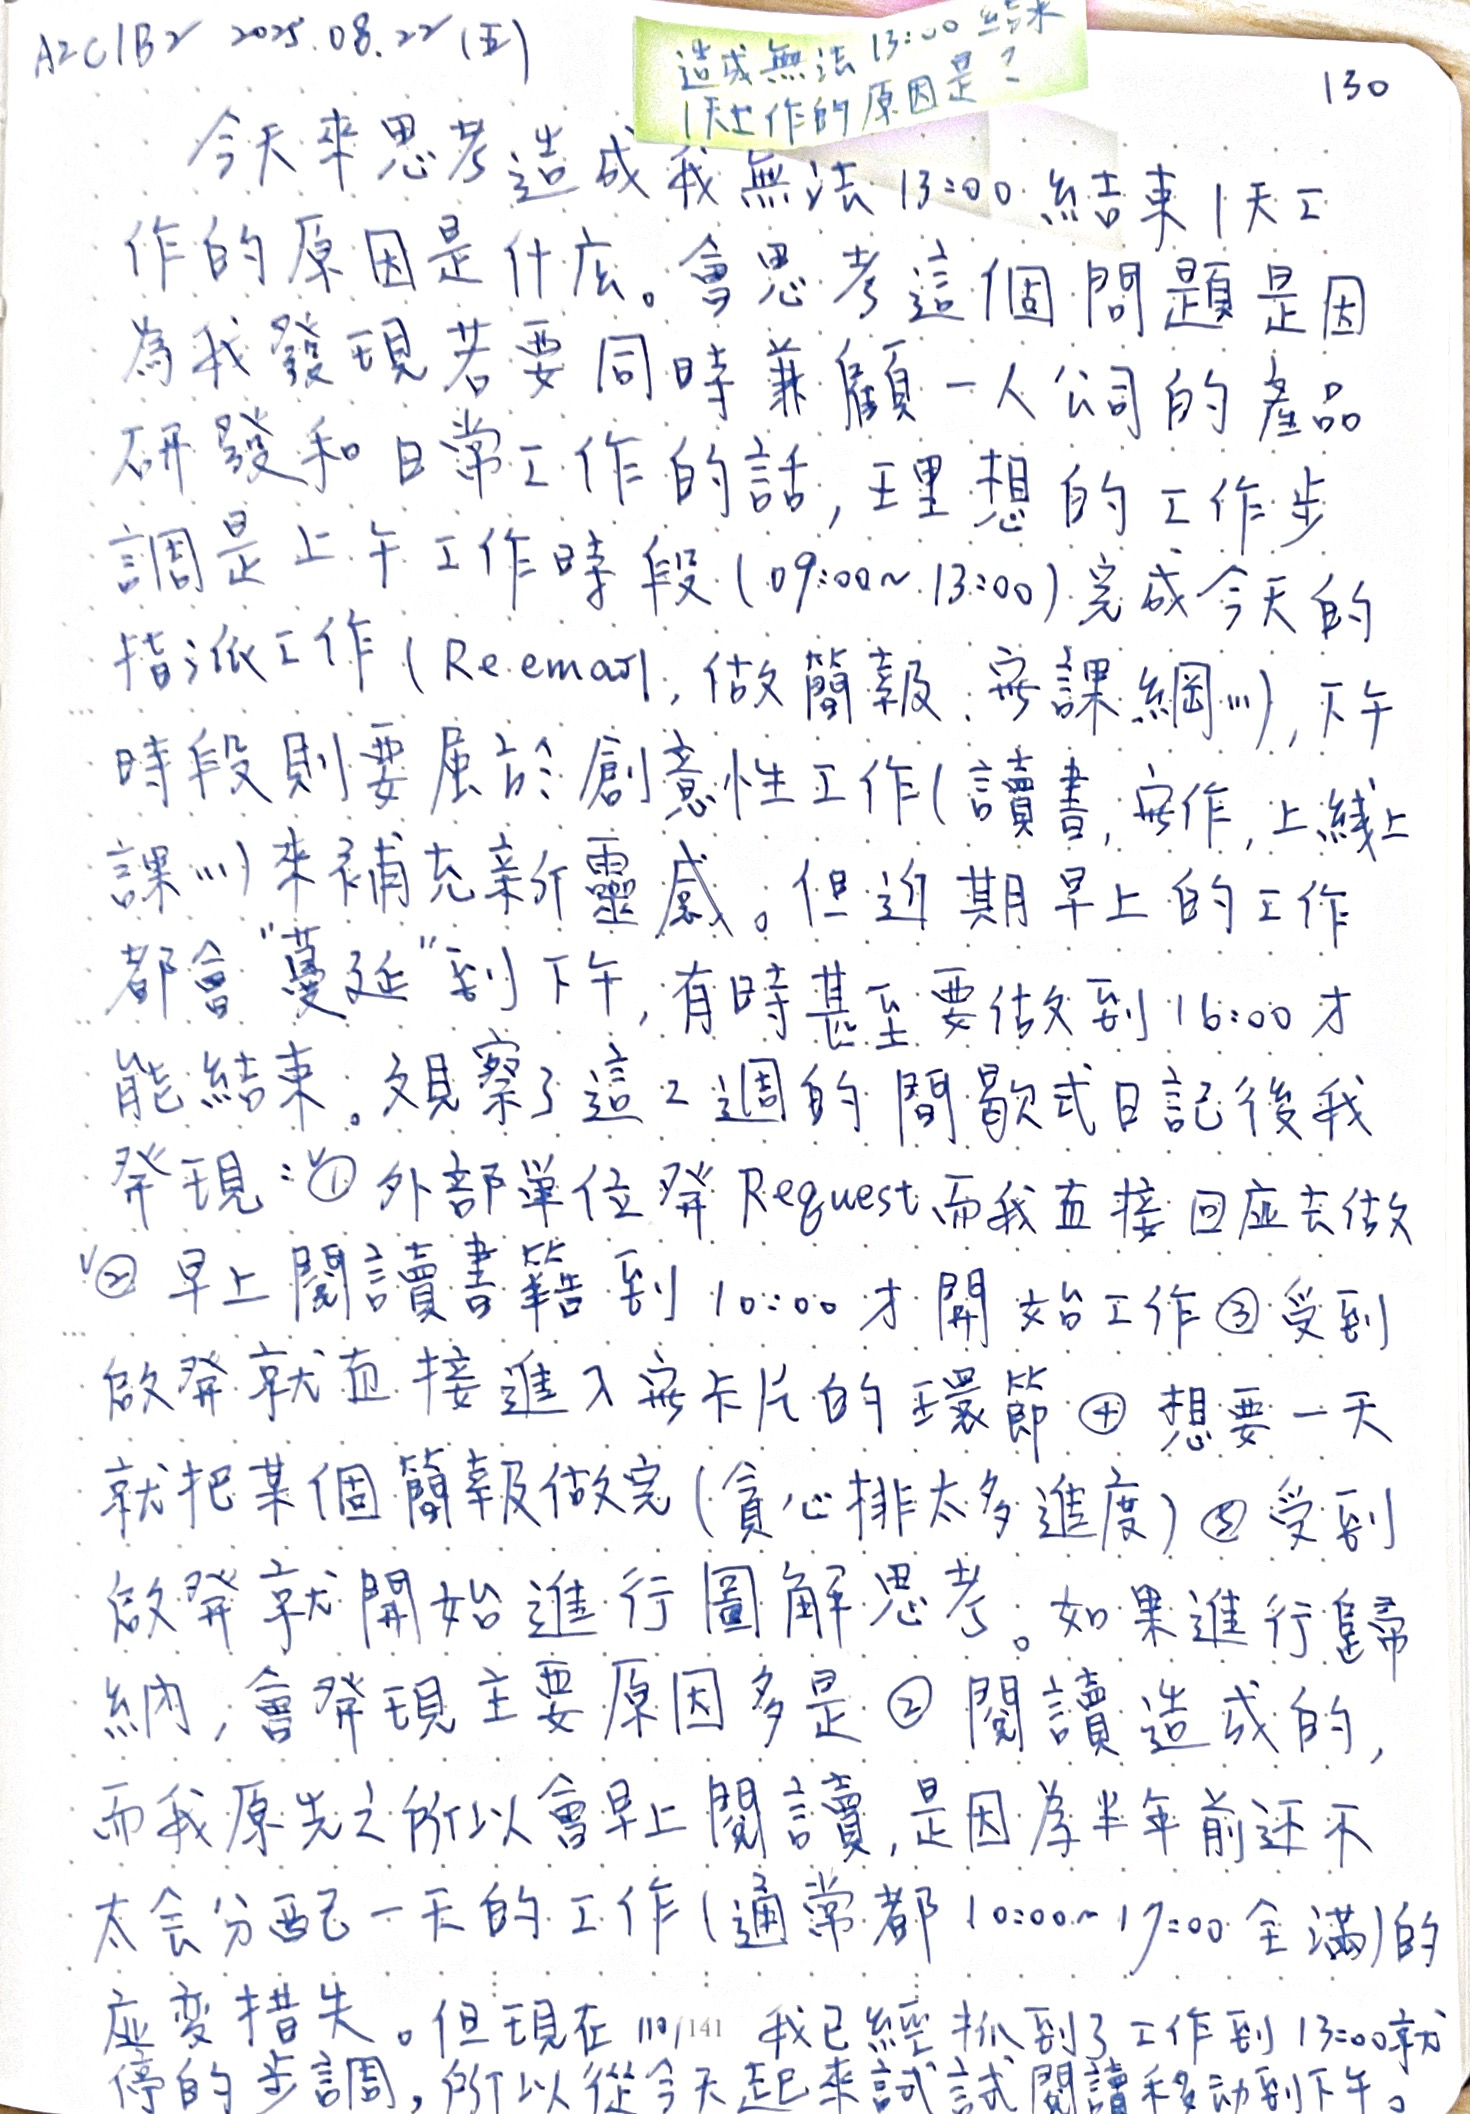 A2C1B2 2025.08.22 (五)
造成無法 13:00 結束
1天工作的原因是?
130
今天來思考造成我無法 13:00 結束 1天工
作的原因是什庅。會思考這個問題是因
為我發現若要同時兼顧一人公司的產品
研發和日常工作的話, 理想的工作步
調是上午工作時段 (09:00~13:00) 完成今天的
指派工作 (Re email, 做簡報、寫課綱...), 下午
時段則要屬於創意性工作 (讀書, 寫作, 上線上
課...) 來補充新靈感。但近期早上的工作
都會"蔓延"到下午, 有時甚至要做到 16:00 才
能結束。觀察了這2週的間歇式日記後我
発現:①外部單位発 Request 而我直接回应去做
②早上閱讀書籍到 10:00 才開始工作 ③受到
啟発就直接進入寫卡片的環節 ④想要一天
就把某個簡報做完 (貪心排太多進度) ⑤受到
啟発就開始進行圖解思考。如果進行歸
納, 會発現主要原因多是②閱讀造成的,
而我原先之所以會早上閱讀, 是因為半年前还不
太会分配一天的工作 (通常都 10:00~17:00 全滿) 的
应变措失。但現在 我已經抓到了工作到 13:00 就
110/141
停的步調, 所以從今天起來試試閱讀移动到下午。